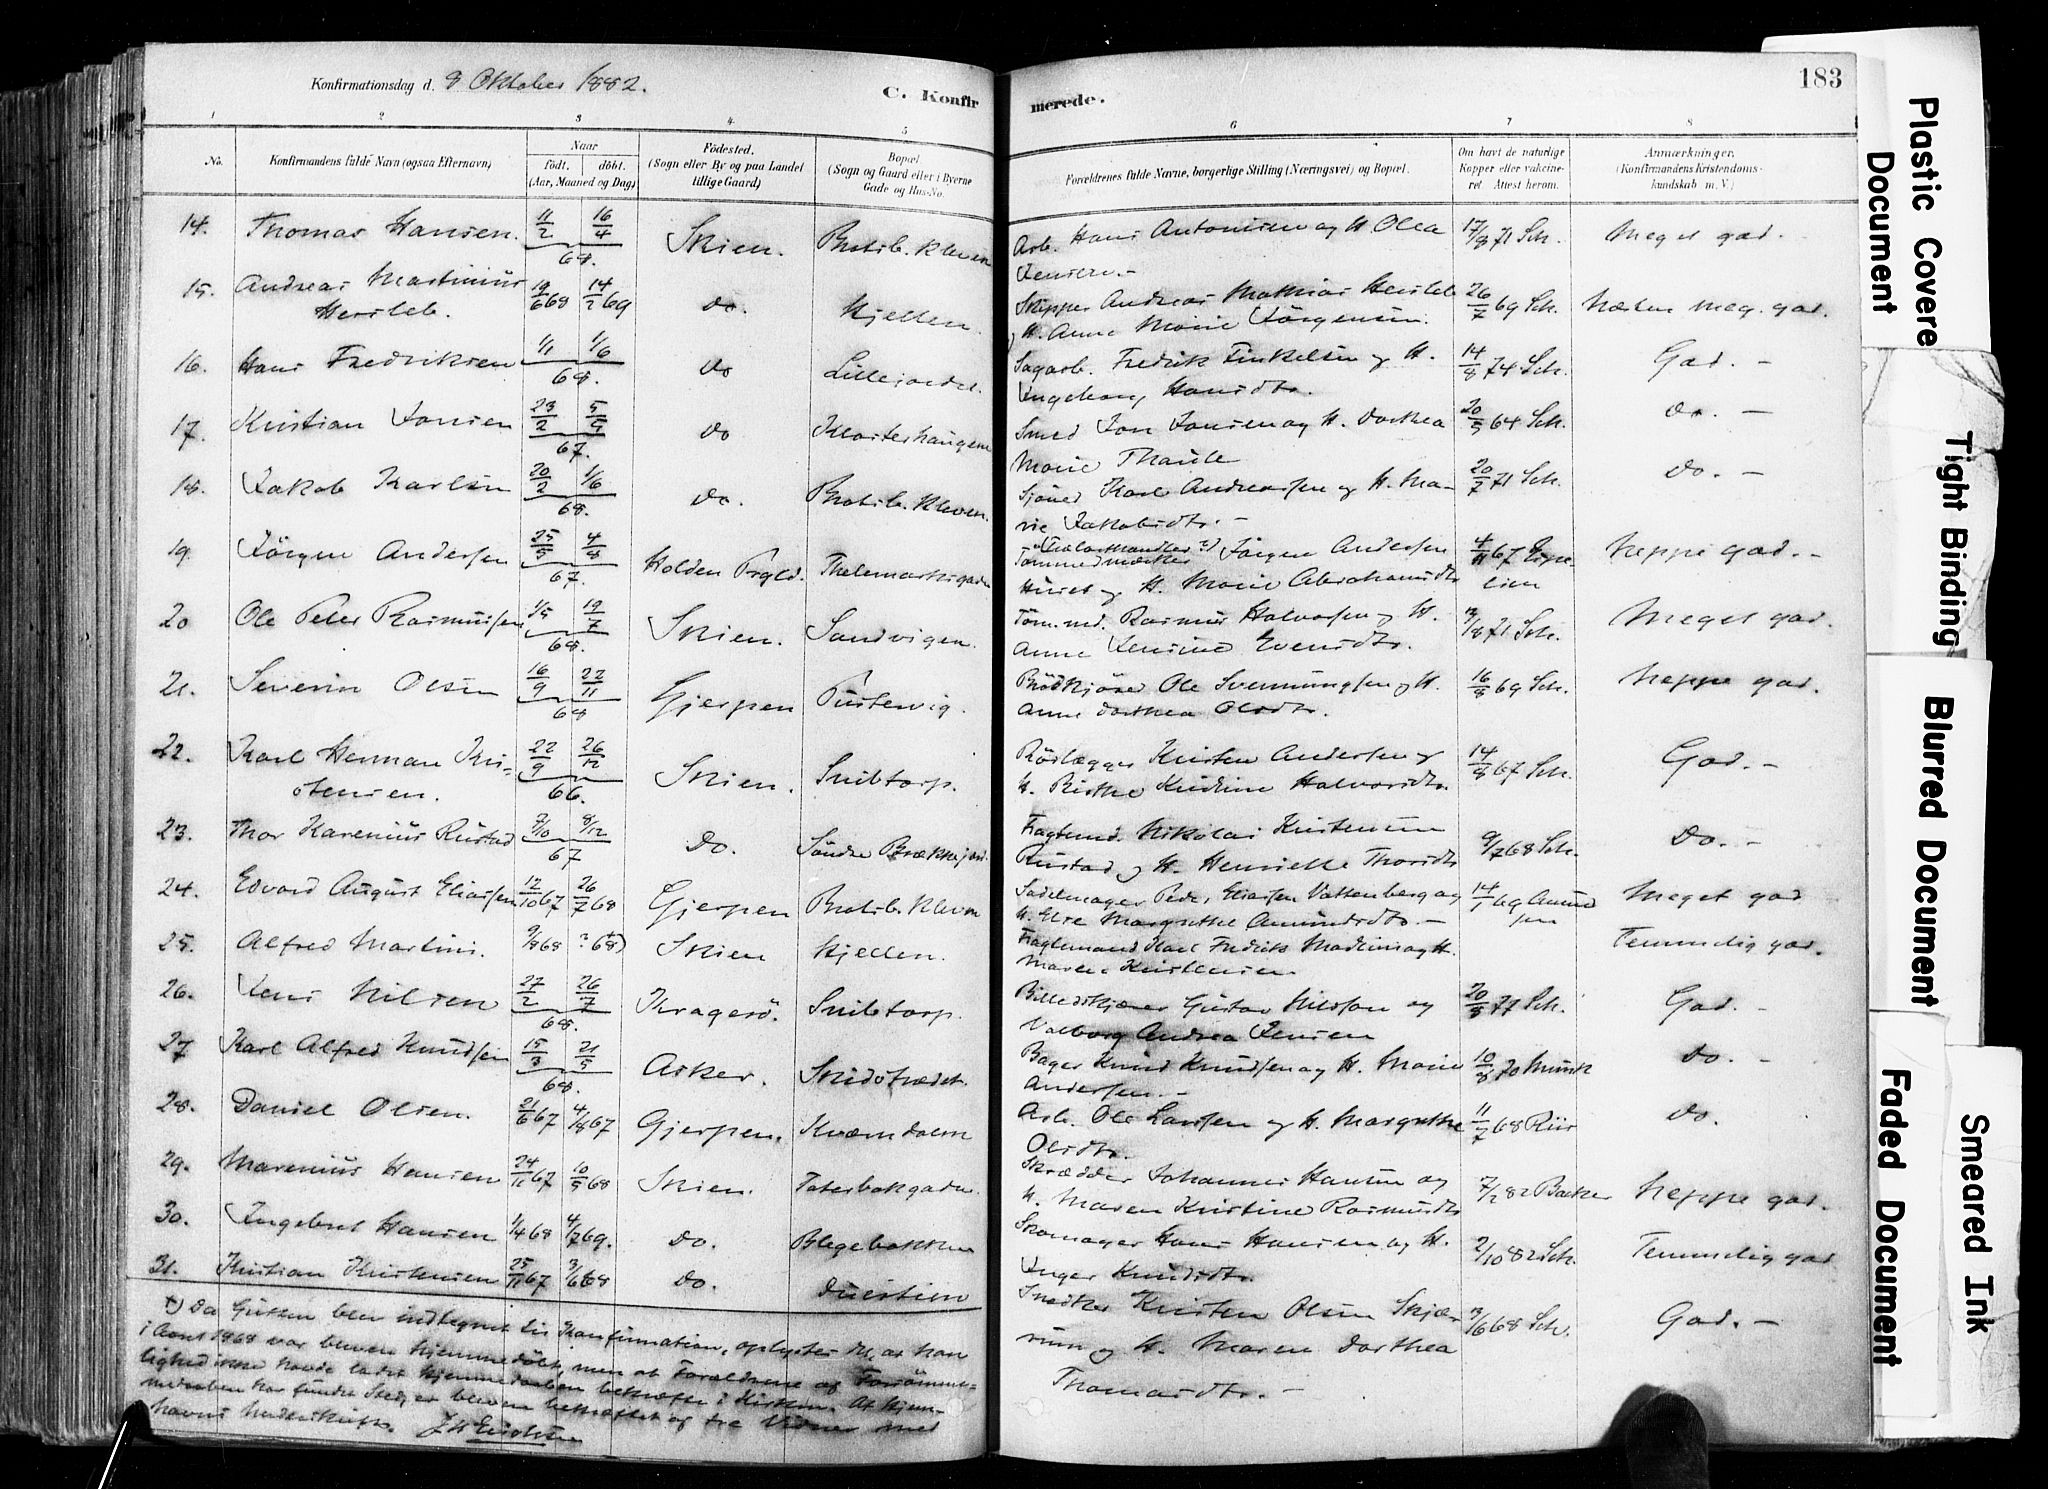 Konfirmationsdag d. 8 Oktober 1882.
C. Konfirmerede.
183
1 2 3 4 5 6 7 8
No.
Konfirmandens fulde Navn (ogsaa Efternavn)
Naar
født. døbt.
(Aar, Maaned og Dag)
Fødested.
(Sogn eller By og paa Landet
tillige Gaard)
Bopæl
(Sogn og Gaard eller i Byerne
Gade og Hus-No.
Forældrenes fulde Navne, borgerlige Stilling (Næringsvei) og Bopæl.
Om havt de naturlige
Kopper eller vakcine-
ret. Attest herom.
Anmærkninger.
(Konfirmandens Kristendoms-
kundskab m. V.)
14. Thomas Hansen. 11/2 16/4 68. Skien. Bratsb. Kleven Arb. Hans Antonisen og H Olea 17/8 71 Sch. Meget god.
Jensen.-
15. Andreas Martinius 19/6 68 14/2 69 do. Hjellen. Skipper Andreas Mathias Hersleb 26/7 69 Sch. Næsten meg. god.
Hersleb. H. Anne Marie Jørgensen.
16. Hans Fredriksen 1/1 1/6 68. do Lillejordet. Sagarb. Fredrik Finkelsen og H. 14/8 74 Sch. God. -
Ingeborg Hansdtr.
17. Kristian Jonsen 23/2 5/9 67. do Klosterhaugene Smed Jon Jonsen og H. Dorthea 20/5 64 Sch. do. -
Marie Thaule
18. Jakob Karlsen 20/2 1/6 68. do. Bratsb. Kleven. Sjømd Karl Andreassen og H. Ma- 20/7 71 Sch. do. -
rie Jakobsdtr. -
19. Jørgen Andersen 25/5 4/8 67. Holden Prgld. Thelemarksgaden Jørgen Andersen 4/11 67 Neppe god. -
H. Marie Abrahamsdtr
20 Ole Peter Rasmussen 1/5 19/7 68. Skien. Sandvigen. Tøm.md. Rasmus Halvorsen og H. 13/8 71 Sch. Meget god.
Anne Jensine Evensdtr.
21. Severin Olsen 16/9 22/11 68 Gjerpen Pustervig. Brødkjører Ole Svennungsen og H. 16/8 69 Sch. Neppe god.
Anne Dorthea Olsdtr.
22. Karl Herman Kri- 22/9 26/12 66. Skien. Snibtorp. Rørlægger Kristen Andersen og 14/8 67 Sch. God. -
stensen. H. Birthe Kirstine Halvorsdtr.
23. Thor Karenius Rustad 7/10 8/12 67 do. Søndre Brække Fragtemd. Nikolai Kristensen 9/7 68 Sch. do. -
Rustad og H. Henriette Thorsdtr
24. Edvard August Eliassen 12/10 67 26/7 68 Gjerpen Bratsb. Kleven Sadelmager Peder Eliassen Vattenberg og 14/1 69 Amund Meget god
H. Else Margrethe Amundsdtr. - sen
25. Alfred Martini. 9/8 68 ? 68) Skien Hjellen. Fragtemand Karl Fredrik og H. Temmelig god.
Maren Kristensen
26. Jens Nilsen 27/2 26/7 68. Kragerø. Snibtorp. Billedskjærer Gustav Nilsson og 20/8 77 Sch. God. -
Valborg Andrea Jensen
27 Karl Alfred Knudsen 15/3 21/5 68. Asker. Skidstrædet. Bager Knud Knudsen og H. Marie 10/8 70 Munk do. -
Andersen. -
28. Daniel Olsen. 21/6 67 4/8 67 Gjerpen. Kværndalen Arb. Ole Larsen og H. Margrethe 11/7 68 Riis do.
Olsdtr.
29. Marenius Hansen 24/11 67 10/5 68 Skien. Taterbakgaden. Skrædder Johannes Hansen og 7/2 82 Backer Neppe god.
H. Maren Kristine Rasmusdtr
30. Ingebret Hansen 1/4 68 4/7 69. do. Blegebakken Skomager Hans Hansen og H. 2/10 82 Sch. Temmelig god
Inger Knudsdtr.
31. Kristian Kristensen 25/11 67 3/6 68 do. Duestien Snedker Kristen Olsen Skjæ- 13/6 68 Sch. God. -
rum og H. Maren Dorthea
Thomasdtr. -
Da Gutten blev indtegnet til Konfirmation, oplystes det, at han
i Aaret 1868 var bleven hjemmedøbt, men at Forældrene af Forsømme-
lighed ikke havde ladet hjemmedaaben bekræfte i Kirken. At hjem-
medaaben har fundet Sted, er bleven bekræftet af tre Vidner med
Navns Underskrift.
Plastic Covered Document
Tight Binding
Blurred Document
Smeared Ink
Faded Document